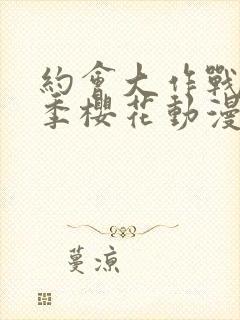 約會大作戰
季櫻花動漫
蔓涼